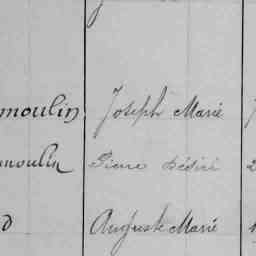 moulin Joseph Marie
moulin Pierre Désiré 2
d Auguste Marie 1